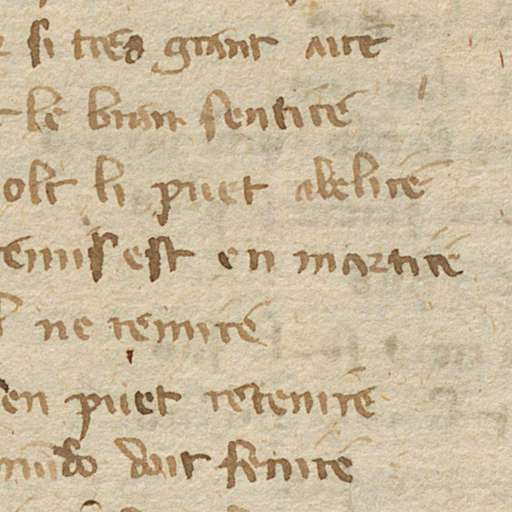 si tres grant aire
le brait sentire
olt li puet abelire
remis est en martire
ne remire
en puet retenire
mundo doit femire